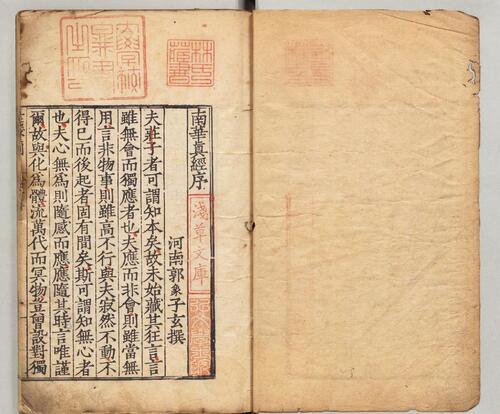 林氏藏書
南華真經序
淺草文庫
河南郭象子玄撰
夫莊子者可謂知本矣故未始藏其狂言言
雖無會而獨應者也夫應而非會則雖當無
用言非物事則雖高不行與夫寂然不動不
得已而後起者固有間矣斯可謂知無心者
也夫心無為則隨感而應應隨其時言唯謹
爾故與化為體流萬代而冥物豈曾設對獨